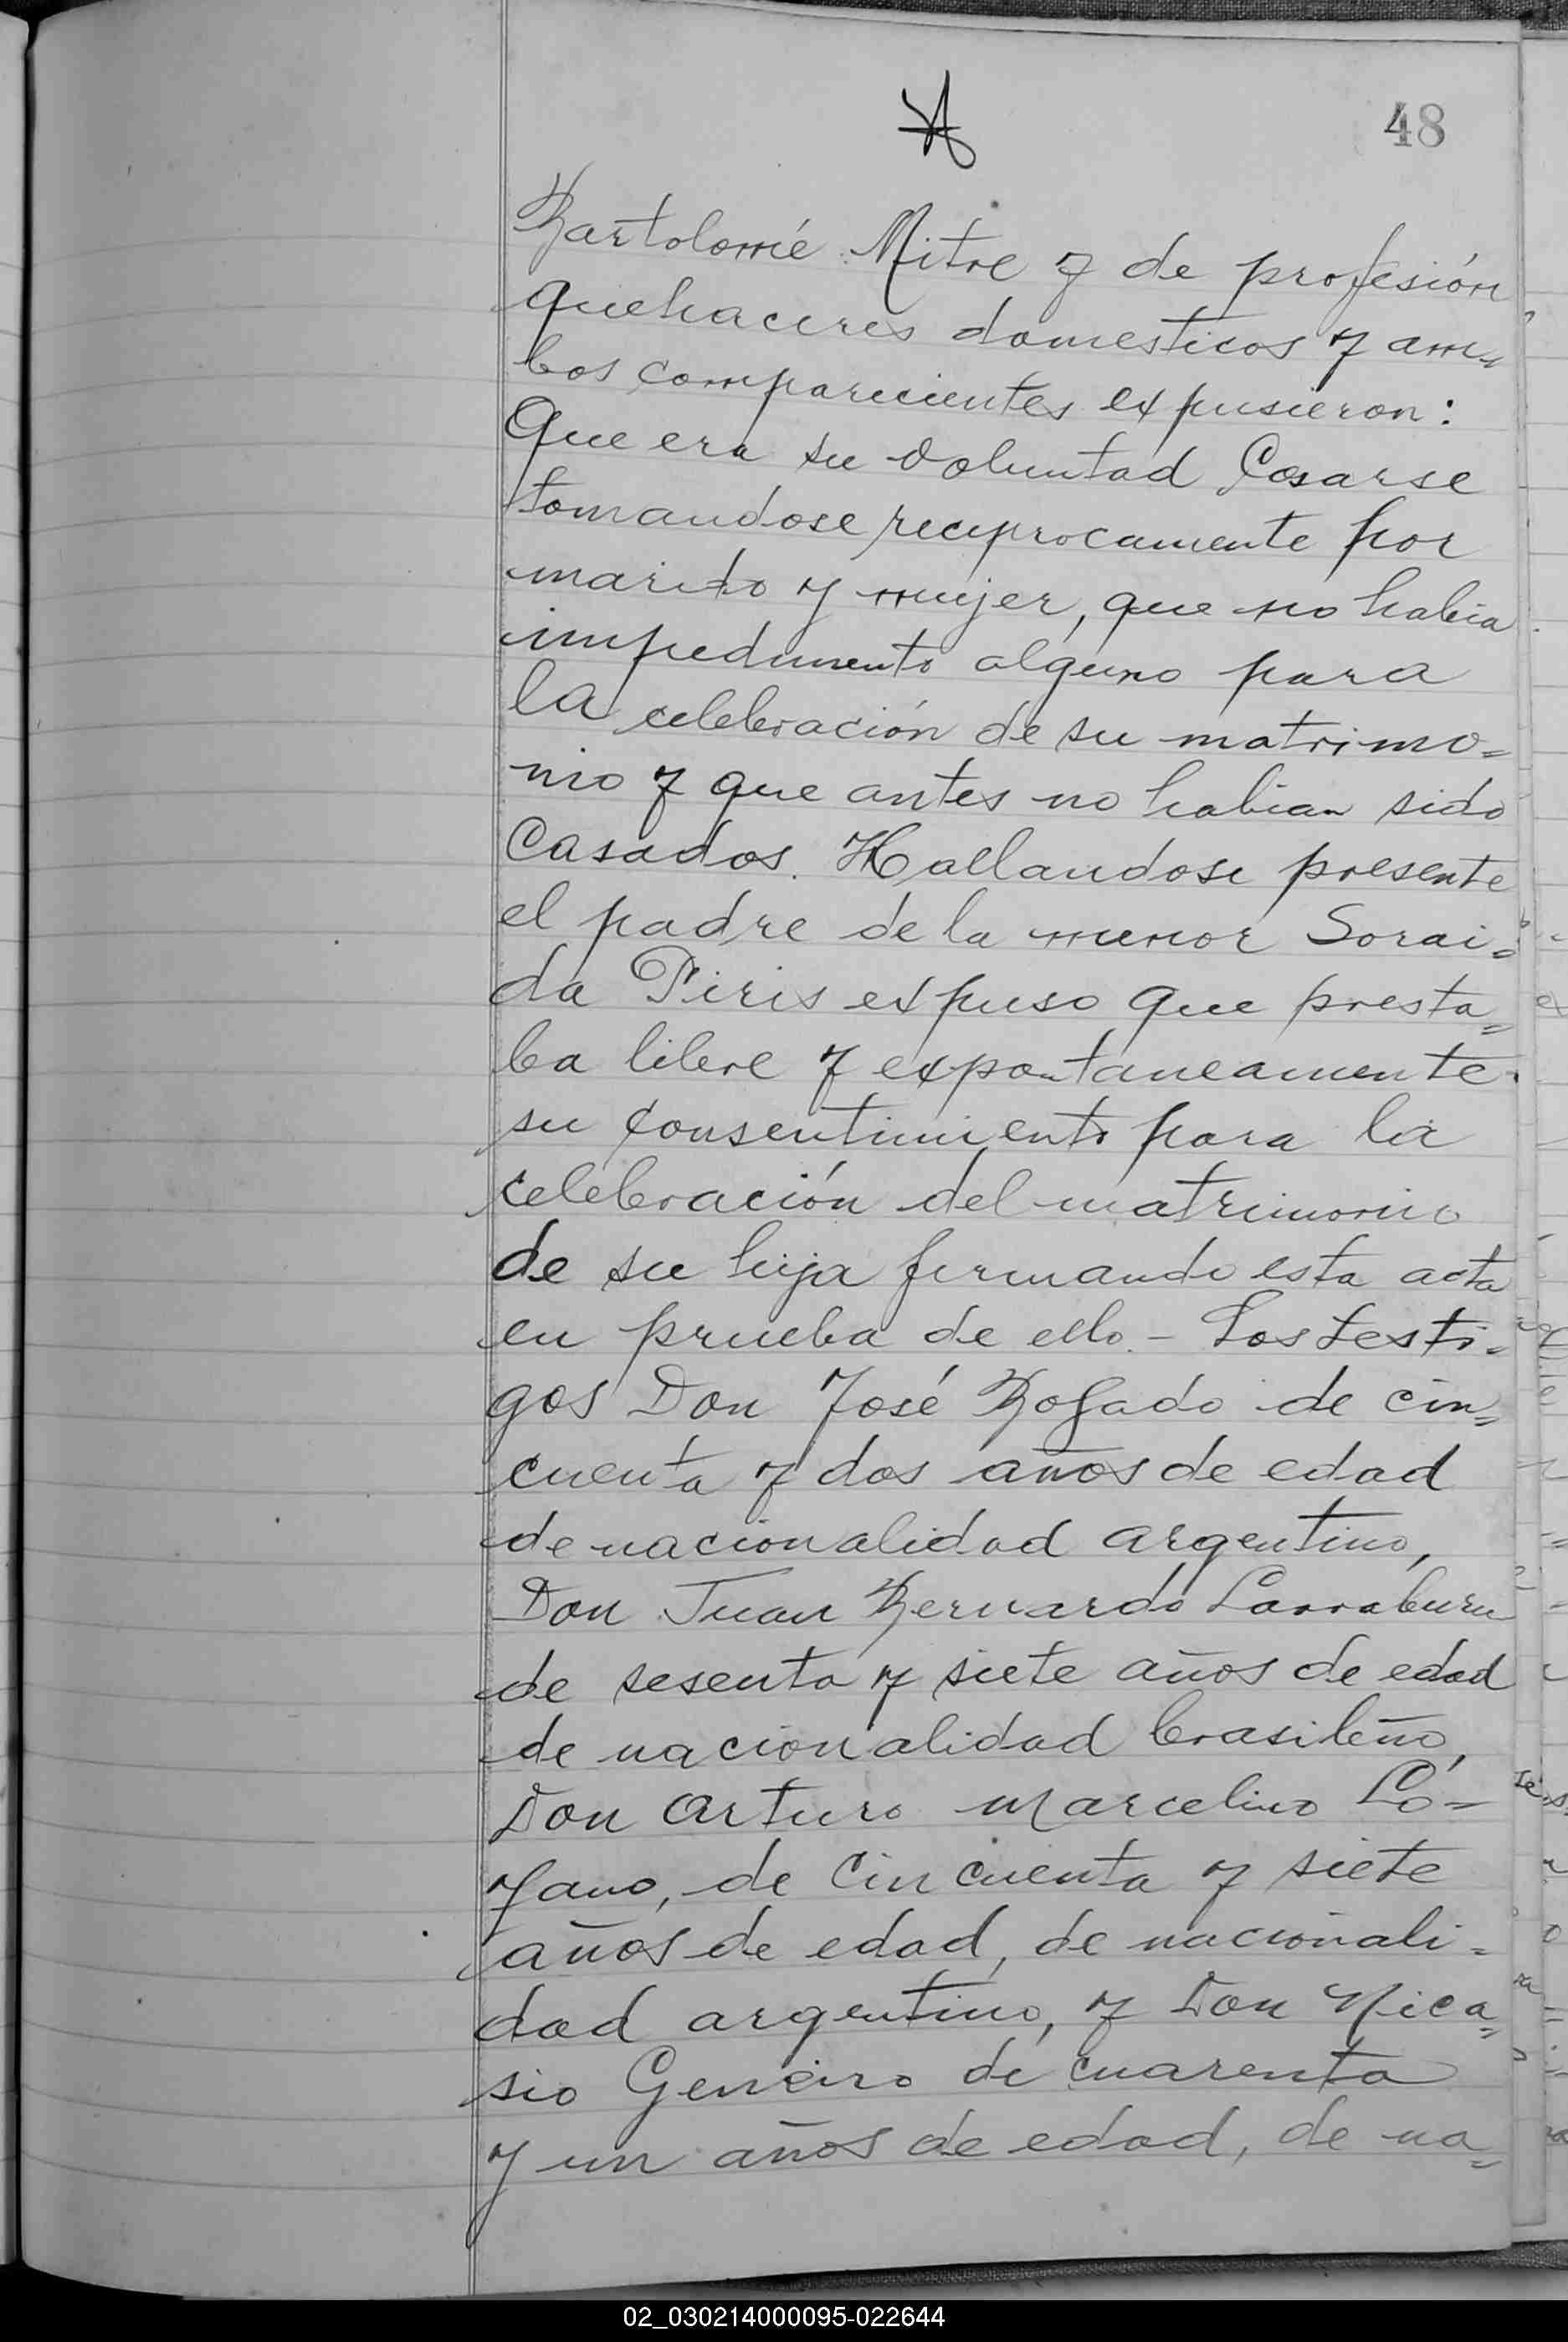 48
Bartolomé Mitre y de profesión
quehaceres domesticos y am=
bos comparecientes expusieron:
Que era su voluntad Casarse
tomandose reciprocamente por
marido y mujer, que no habia
impedimento alguno para
la celebración de su matrimo=
nio y que antes no habian sido
Casados. Hallandose presente
el padre de la menor Sorai=
da Piris expuso que presta=
ba libre y expontaneamente
su consentimiento para la
celebración del matrimonio
de su hija firmando esta acta
en prueba de ello.- Los testi=
gos Don José Bofado de cin=
cuenta y dos años de edad
de nacionalidad argentino,
Don Juan Bernardo Larraburu
de sesenta y siete años de edad
de nacionalidad brasileño,
Don Arturo Marcelino Ló=
yano, de cincuenta y siete
años de edad, de nacionali=
dad argentino, y Don Nica=
sio Geneiro de cuarenta
y un años de edad, de na=
02_030214000095-022644